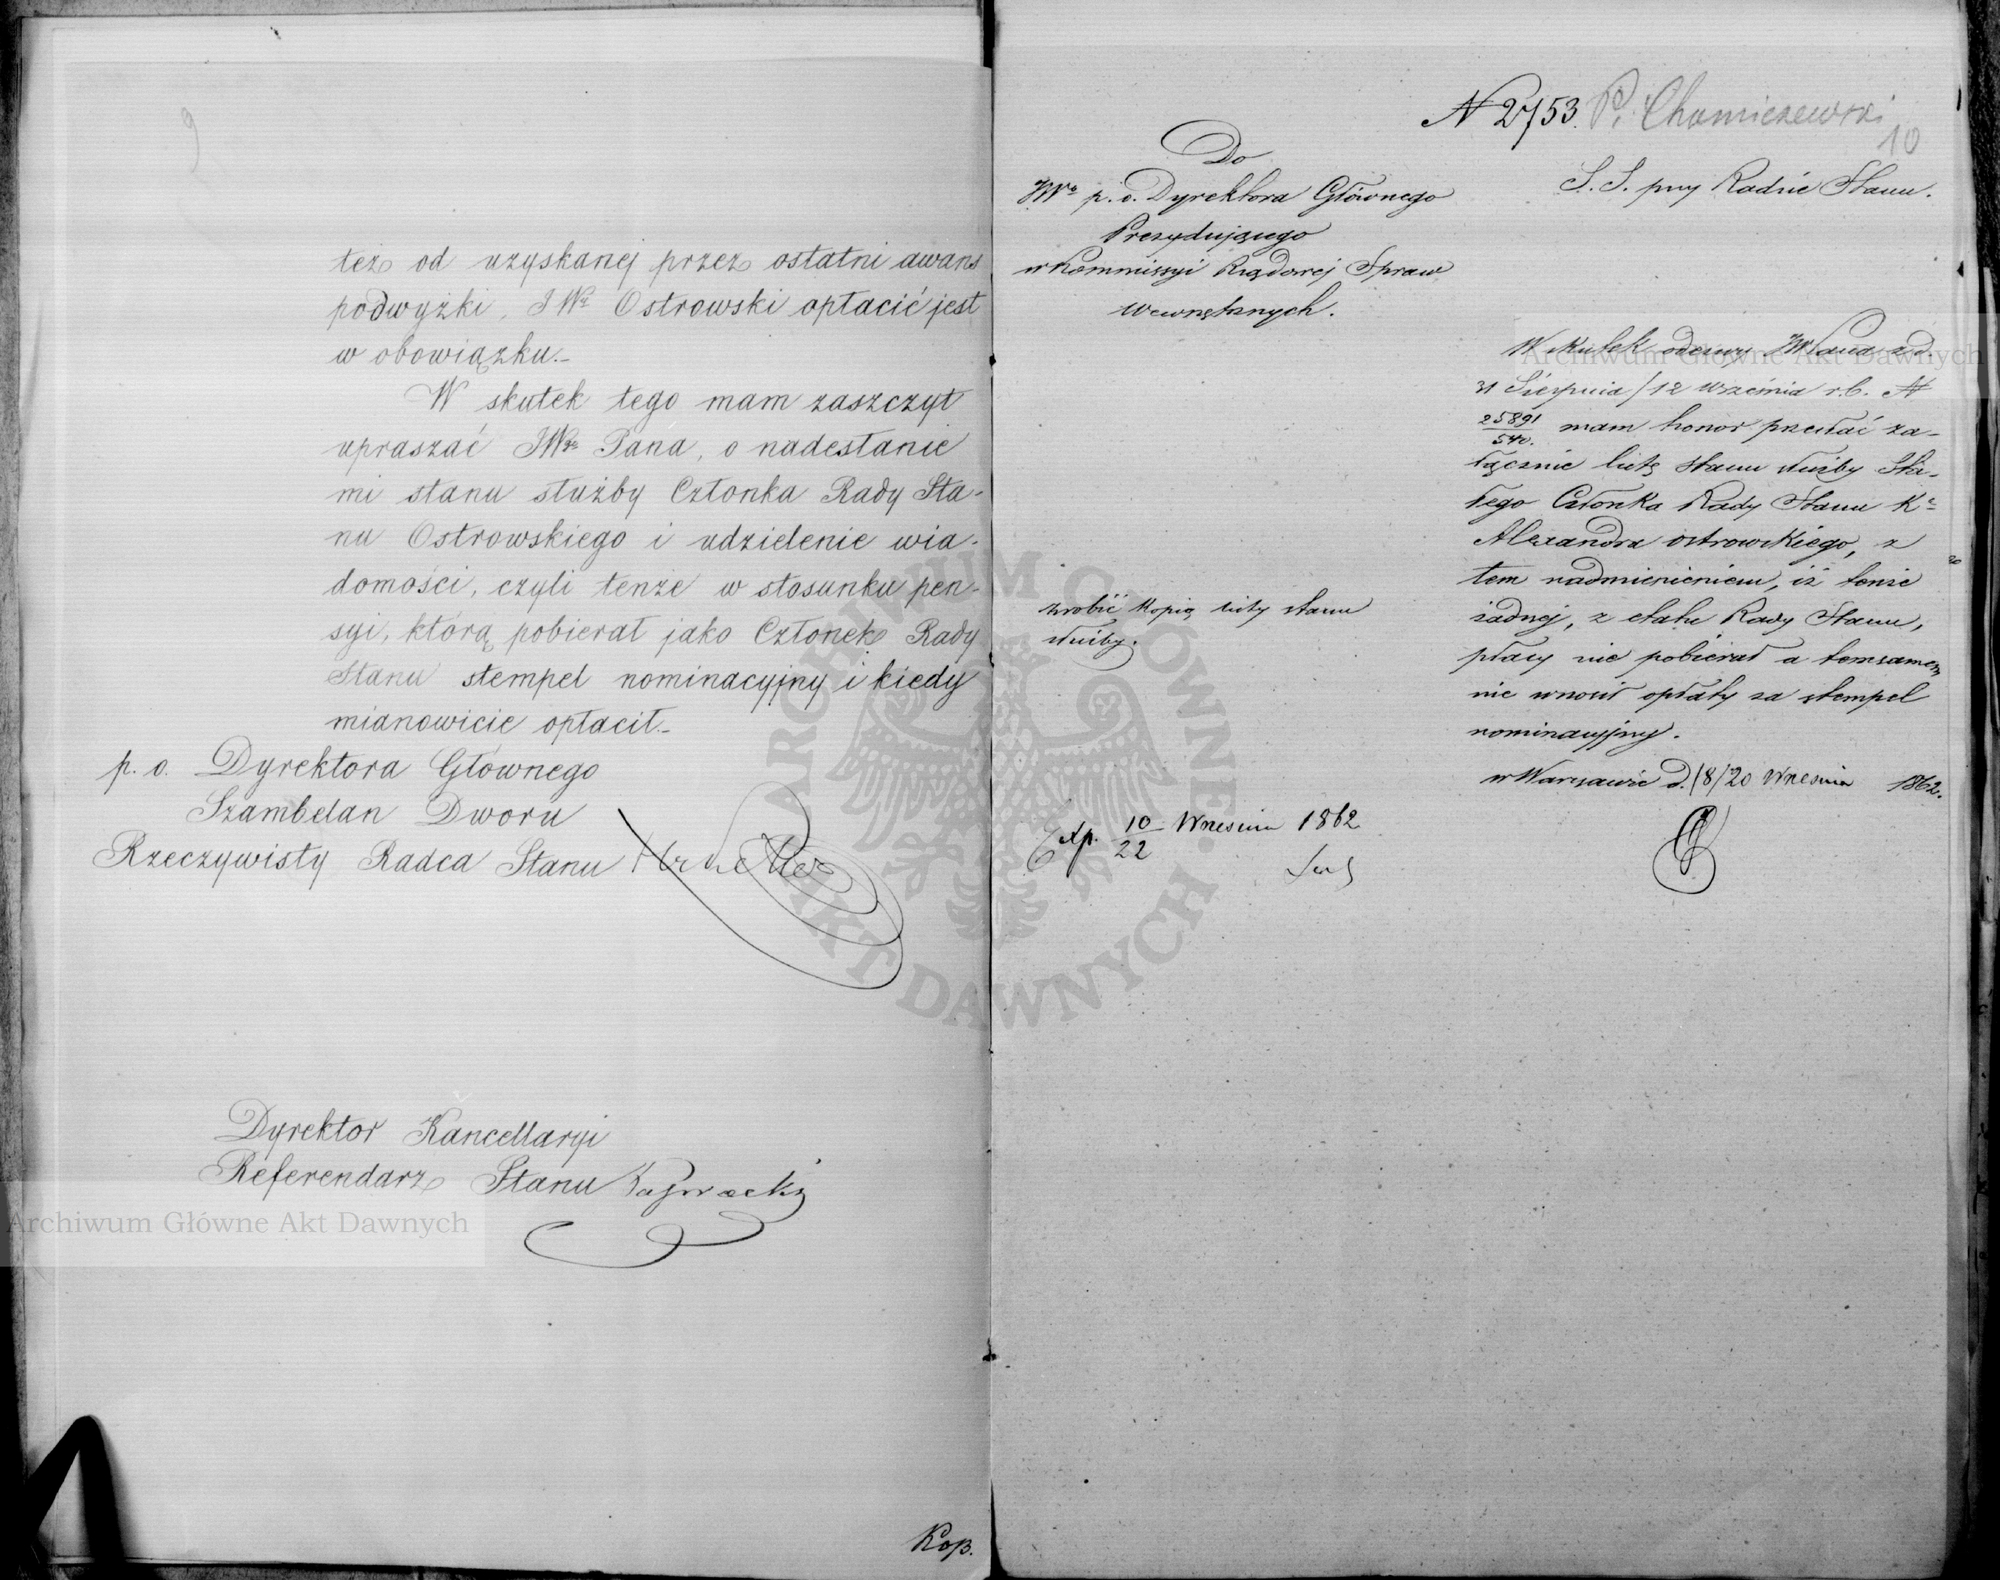 9
też od uzyskanej przez ostatni awans
podwyżki, JWy Ostrowski opłacić jest
w obowiązku.—
W skutek tego mam zaszczyt
upraszać JWgo Pana, o nadesłanie
mi stanu służby Członka Rady Sta-
nu Ostrowskiego i udzielenie wia-
domości, czyli tenże w stosunku pen-
syi, którą pobierał jako Członek Rady
Stanu stempel nominacyjny i kiedy
mianowicie opłacił.—
p. o. Dyrektora Głównego
Szambelan Dworu
Rzeczywisty Radca Stanu
Dyrektor Kancellaryi
Referendarz Stanu
Kop.
N 2753. P. Chomiczewski
10
Do
JWo p. o. Dyrektora Głównego
Prezydującego
w Kommissyi Rządowej Spraw
Wewnętrznych.
S. S. przy Radzie Stanu.
W skutek odezwy JWPana z d.
31 Sierpnia/12 Września r.b. N
25891/540. mam honor przesłać za-
łącznie listę stanu służby Sta-
łego Członka Rady Stanu Ka
Alexandra Ostrowskiego, z
tem nadmienieniem, iż tenże
żadnej, z etatu Rady Stanu,
płacy nie pobierał a temsamem
nie wnosił opłaty za stempel
nominacyjny.
w Warszawie d. (8)/20 Września 1862.
zrobić kopią listy stanu
służby.
Exp. 10/22 Września 1862
Archiwum Główne Akt Dawnych
Archiwum Główne Akt Dawnych
ARCHIWUM GŁÓWNE AKT DAWNYCH